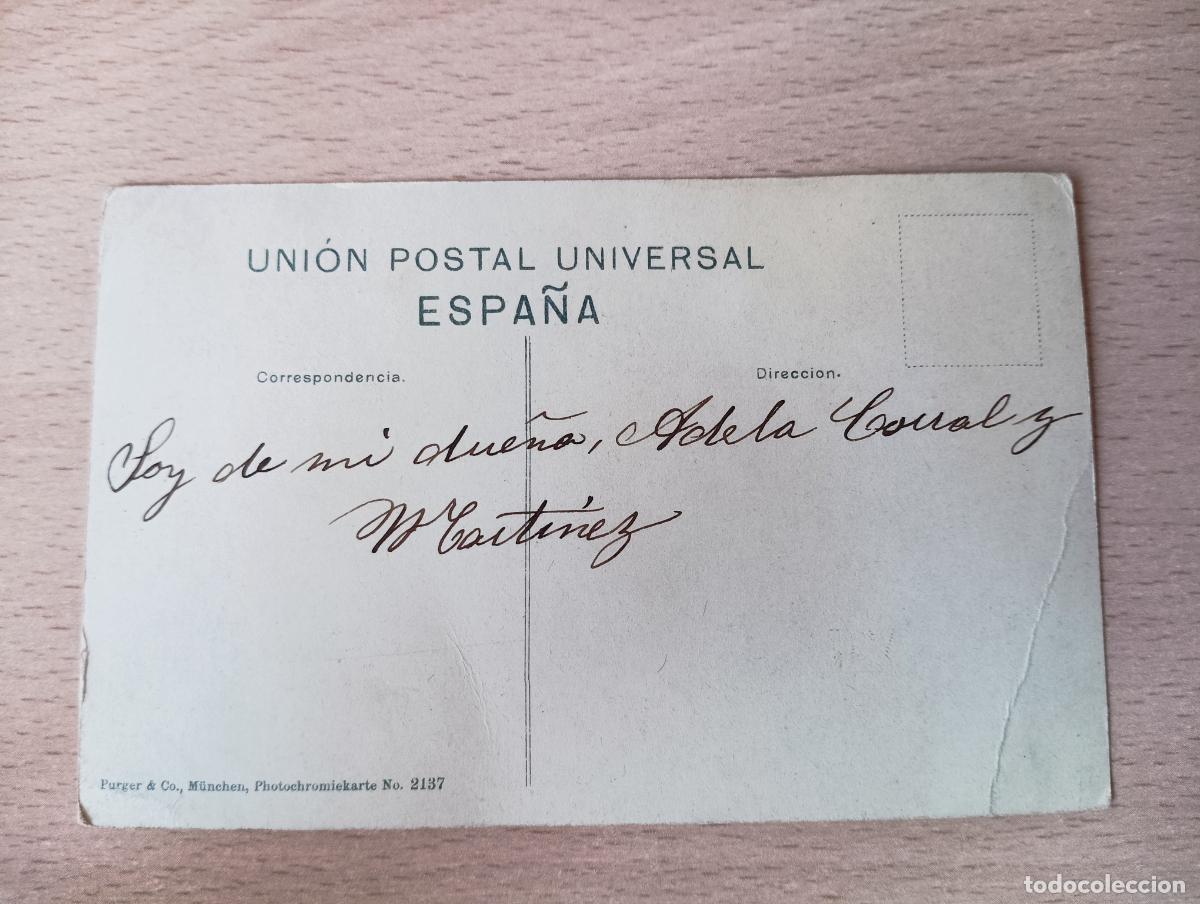 UNIÓN POSTAL UNIVERSAL
ESPAÑA
Correspondencia.
Direccion.
Soy de mi dueña, Adela Corral y
Martínez
Purger & Co., München, Photochromiekarte No. 2137
todocoleccion